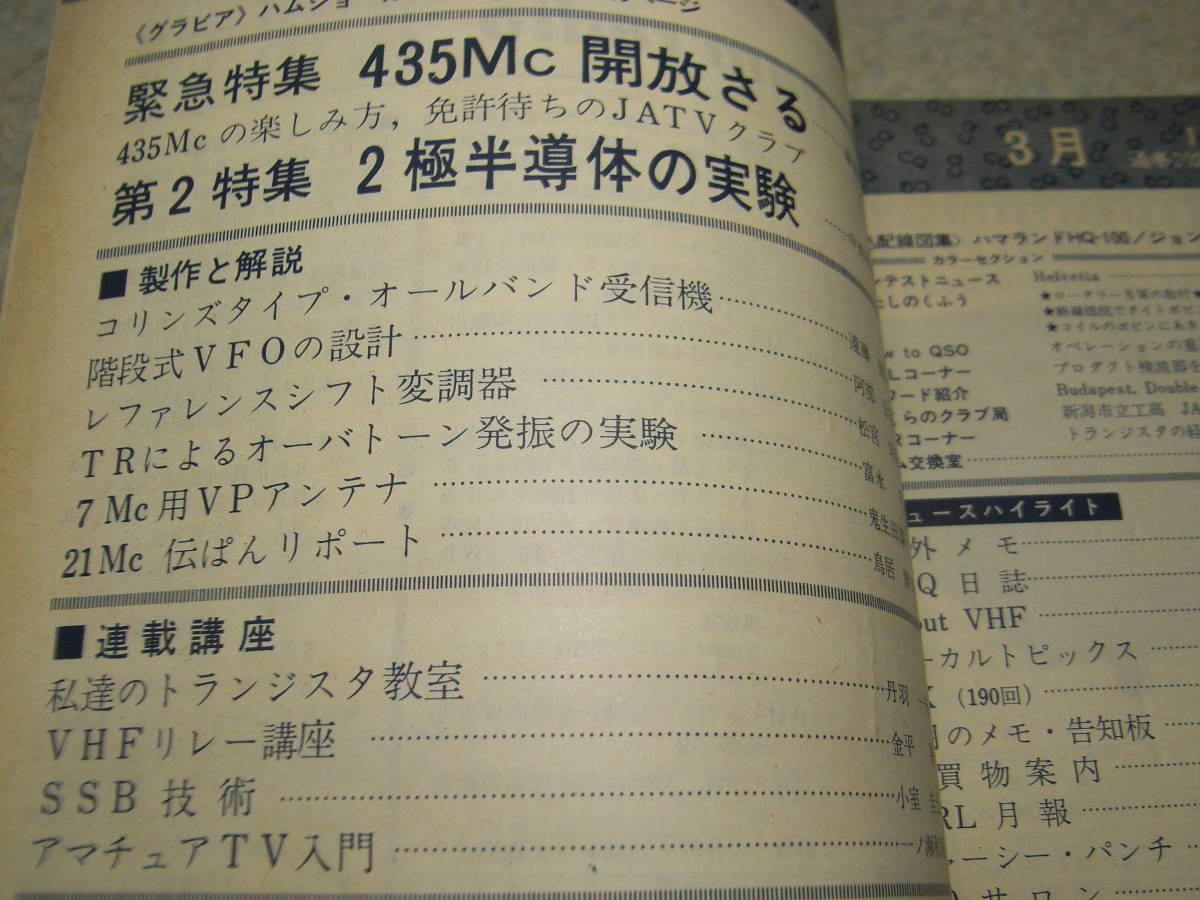 〈グラビア〉ハムショ
ページ
緊急特集 435Mc 開放さる
435Mcの楽しみ方，免許待ちのJATVクラブ
第2特集 2極半導体の実験
■ 製作と解説
コリンズタイプ・オールバンド受信機 遠藤
階段式VFOの設計 阿部
レファレンスシフト変調器 松宮
TRによるオーバトーン発振の実験 富永
7Mc用VPアンテナ 鬼生田
21Mc 伝ぱんリポート 鳥居
■ 連載講座
私達のトランジスタ教室 丹羽 一
VHFリレー講座 金平
SSB 技術 小室
アマチュアTV入門 一ノ瀬
3月
配線図集〉ハマランドHQ-100／ジョン
カラーセクション
ンテストニュース Helvetia
としのくふう
to QSO オペレーションの重
Lコーナー プロダクト検波器を
ワード紹介 Budapest, Double
らのクラブ局 新潟市立工高 JA
Rコーナー トランジスタの経
ム交換室
ュースハイライト
外メモ
Q日誌
out VHF
ーカルトピックス
K (190回)
月のメモ・告知板
買物案内
RL月報
ャーシー・パンチ
サロン